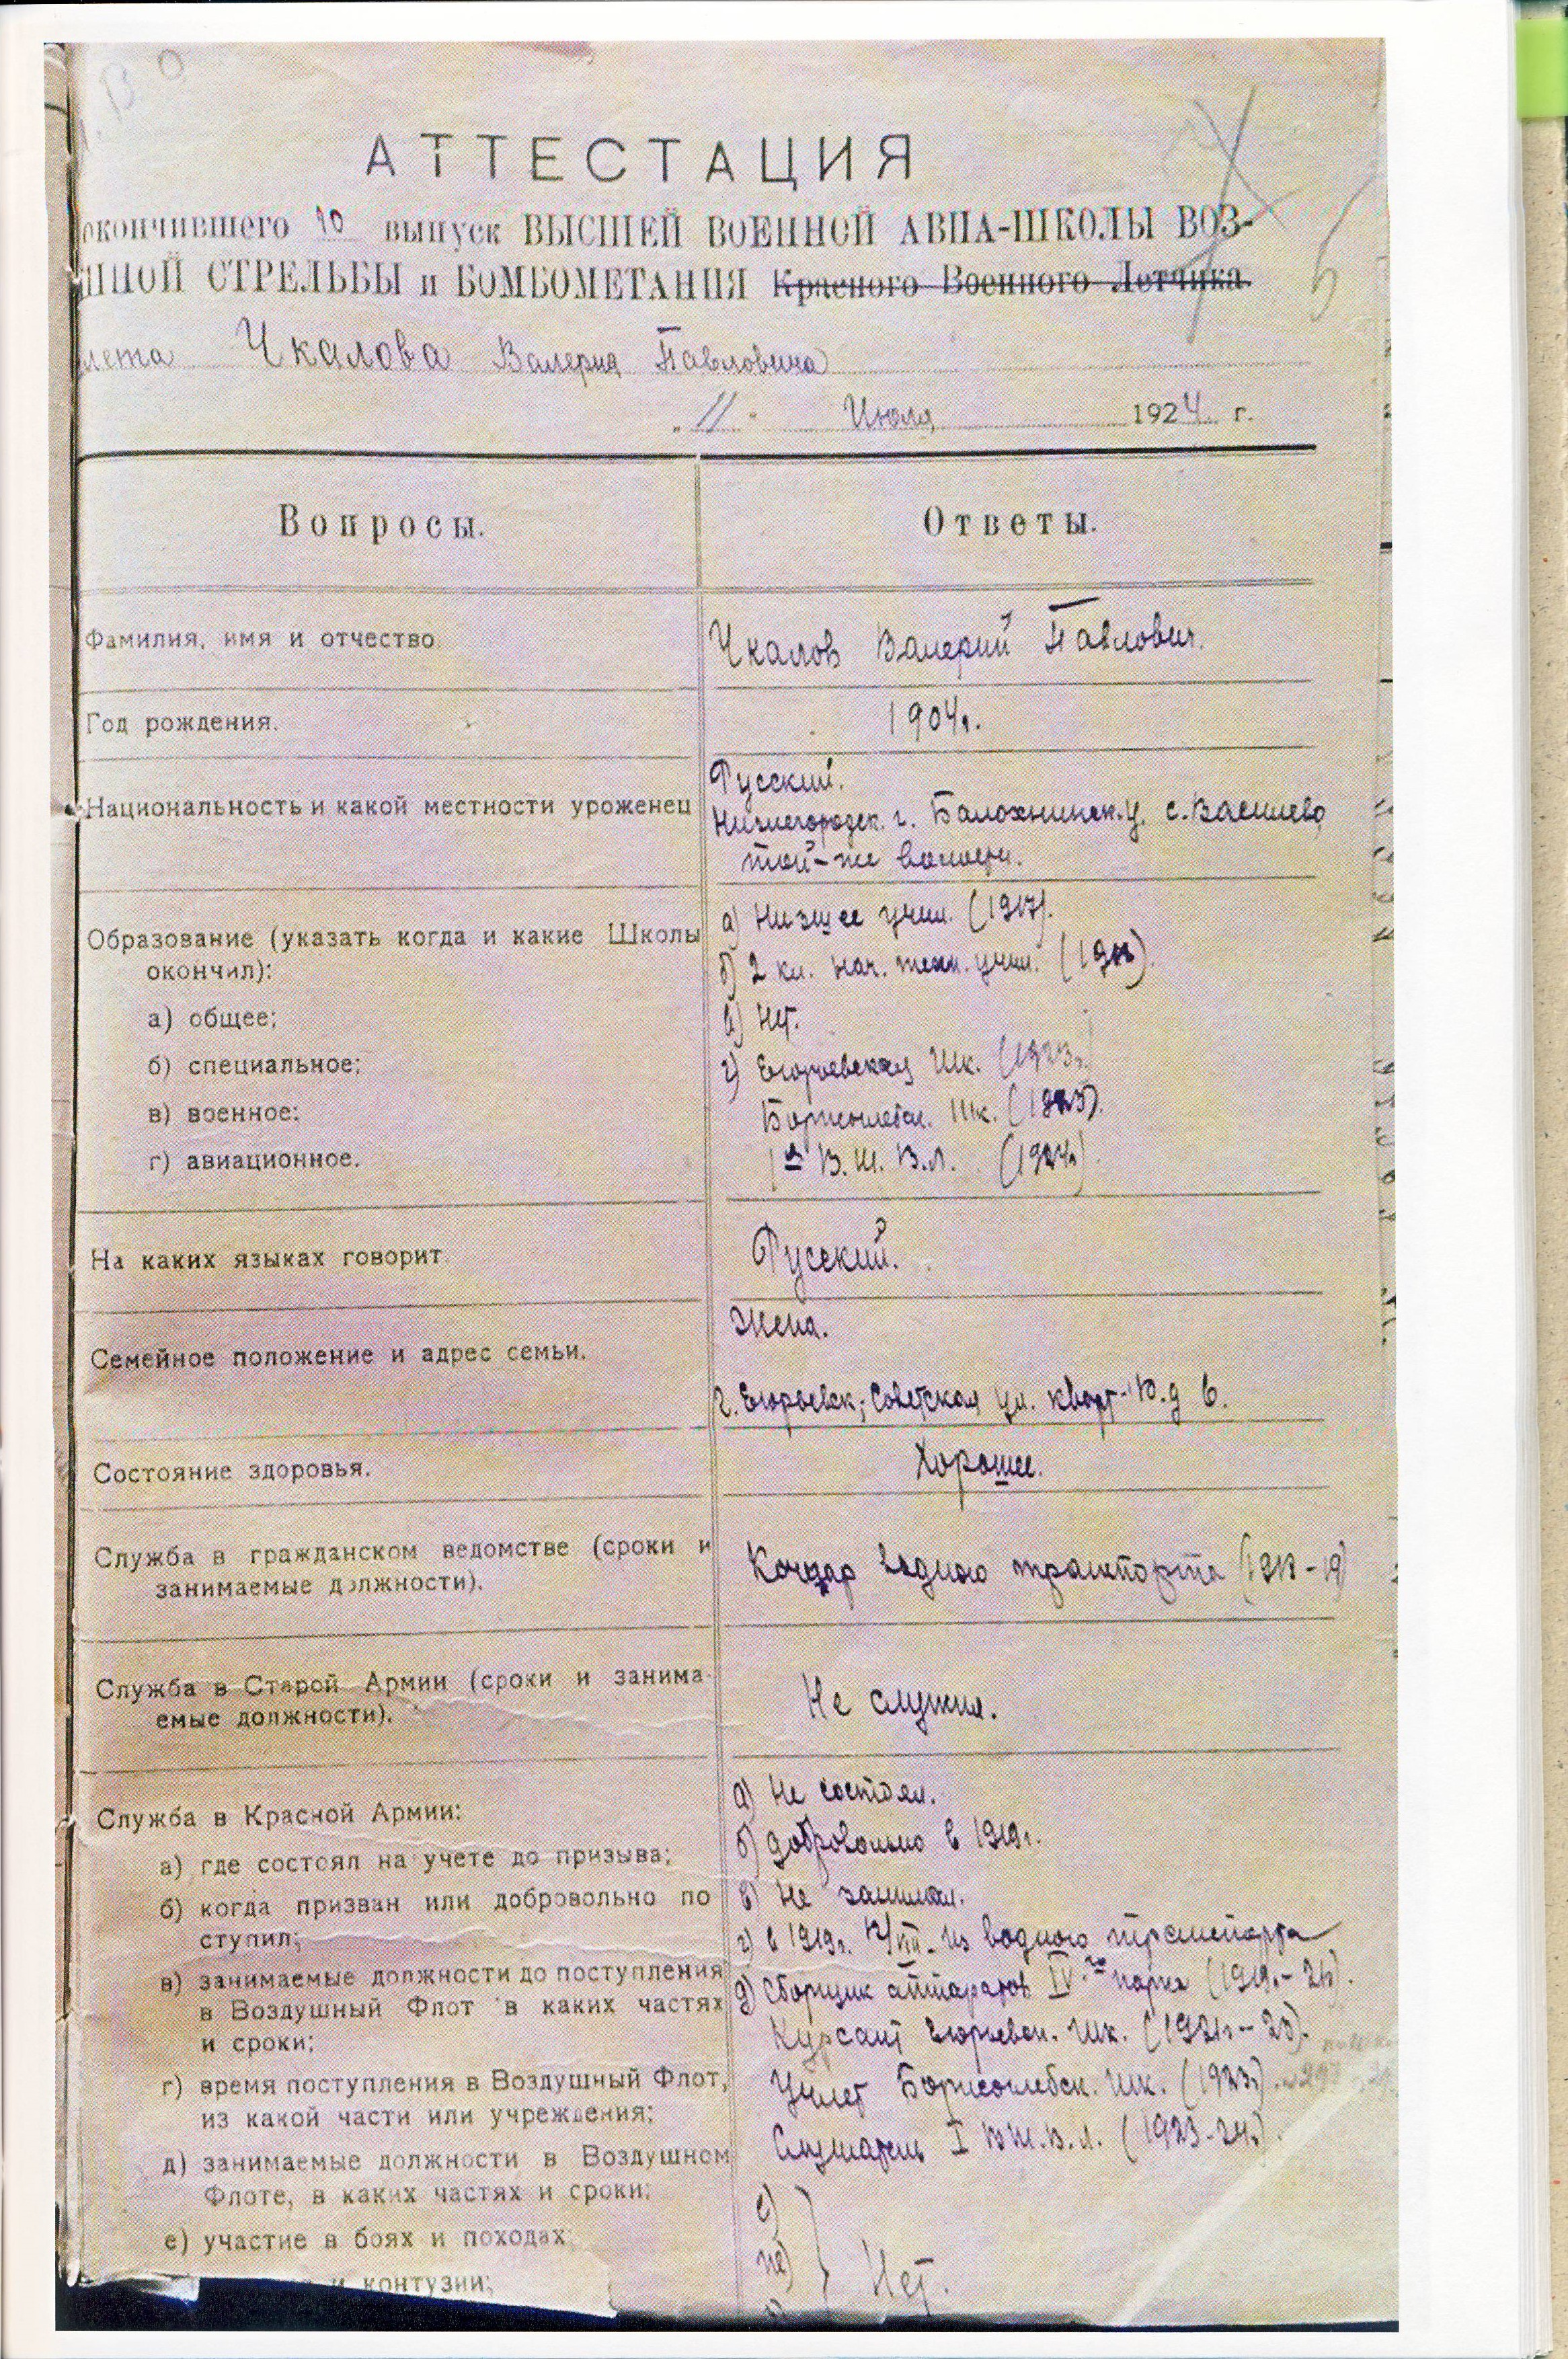 АТТЕСТАЦИЯ
окончившего 10 выпуск ВЫСШЕЙ ВОЕННОЙ АВИА-ШКОЛЫ ВОЗ-
ШНОЙ СТРЕЛЬБЫ и БОМБОМЕТАНИЯ Красного Военного Летчика
лета Чкалова Валерия Павловича
„11" Июля 1924 г.
Вопросы. Ответы.
Фамилия, имя и отчество. Чкалов Валерий Павлович.
Год рождения. 1904г.
Национальность и какой местности уроженец
Русский.
Нижегородск. г. Балохнинск. у. с. Василево
той-же волости.
Образование (указать когда и какие Школы
окончил):
а) общее;
б) специальное;
в) военное;
г) авиационное.
а) Низшее учил. (1917).
б) 2 кл. нач. техн. учил. (1918).
в) Нет.
г) Егорьевская Шк. (1923г.)
Борисоглебск. Шк. (1923).
1ая В. Ш. В. Л. (1924г)
На каких языках говорит. Русский.
Семейное положение и адрес семьи.
Жена.
г. Егорьевск, Советская ул. д 6.
Состояние здоровья. Хорошее.
Служба в гражданском ведомстве (сроки и
занимаемые должности).
Кочегар водного транспорта (1918-19)
Служба в Старой Армии (сроки и занима-
емые должности).
Не служил.
Служба в Красной Армии:
а) где состоял на учете до призыва;
б) когда призван или добровольно по
ступил;
в) занимаемые должности до поступления
в Воздушный Флот в каких частях
и сроки;
г) время поступления в Воздушный Флот,
из какой части или учреждения;
д) занимаемые должности в Воздушном
Флоте, в каких частях и сроки;
е) участие в боях и походах;
и контузии;
а) Не состоял.
б) Добровольно в 1919г.
в) Не занимал.
г) в 1919г. 12/VIII. из водного транспорта
д) Сборщик аппаратов IV-го парка (1919.-21г).
Курсант Егорьевск. Шк. (1921г-23).
Учлет Борисоглебск. Шк. (1923г).
Слушатель I В Ш. В. Л. (1923-24г).
е)
ж)
Нет.